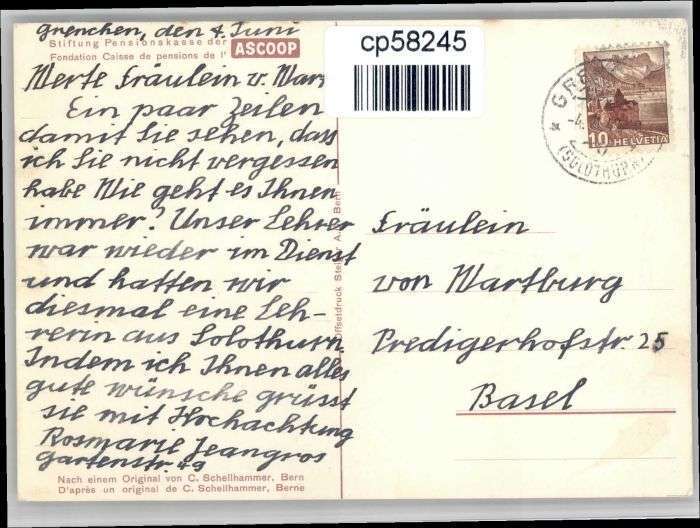 Grenchen, den 4. Juni
Stiftung Pensionskasse der
Fondation Caisse de pensions de l'
ASCOOP
Werte Fräulein v. Wart
Ein paar Zeilen
damit Sie sehen, dass
ich Sie nicht vergessen
habe Wie geht es Ihnen
immer? Unser Lehrer
war wieder im Dienst
und hatten wir
diesmal eine Leh-
rerin aus Solothurn.
Indem ich Ihnen alles
gute wünsche grüsst
sie mit Hochachtung
Rosmarie Jeangros
Gartenstr. 49
Nach einem Original von C. Schellhammer, Bern
D'après un original de C. Schellhammer, Berne
Offsetdruck
Bern
cp58245
GRE
(SOLOTHURN)
10 HELVETIA
Fräulein
von Wartburg
Predigerhofstr. 25
Basel